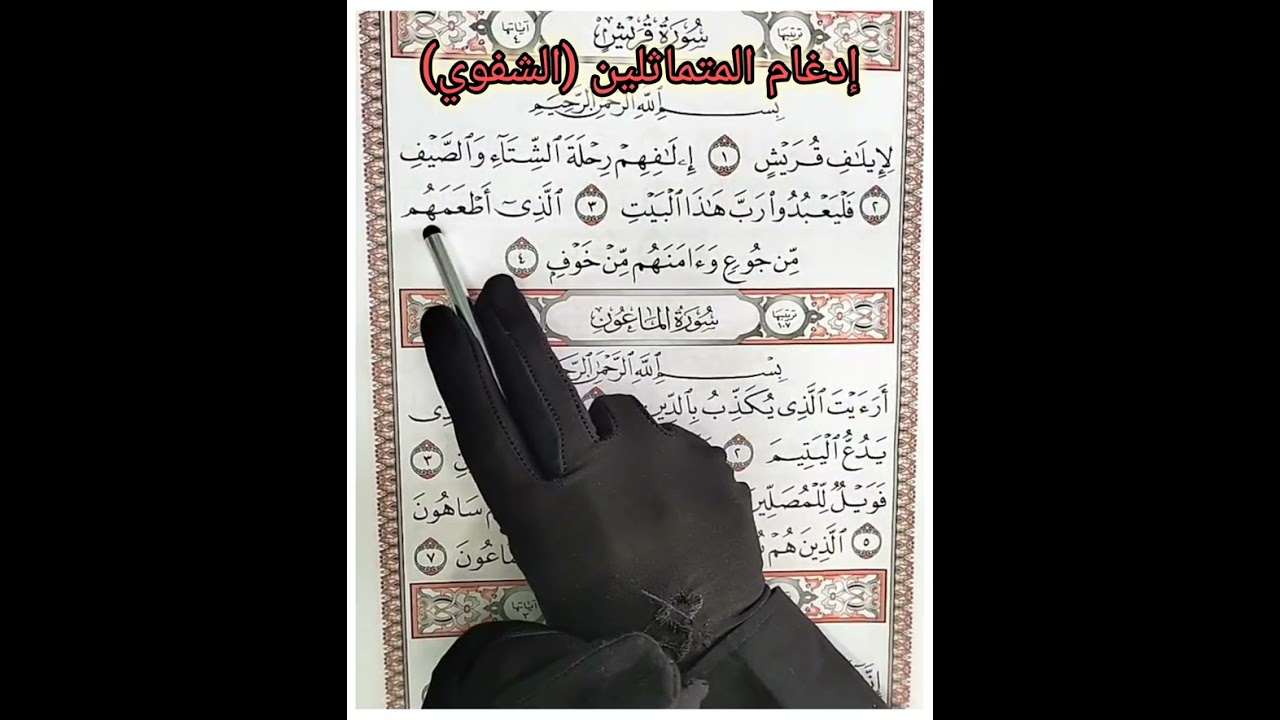 سُورَةُ قُرَيْشٍ
ترتيبها
آياتها ٤
إدغام المتماثلين (الشفوي)
بِسْمِ ٱللَّهِ ٱلرَّحْمَٰنِ ٱلرَّحِيمِ
لِإِيلَٰفِ قُرَيْشٍ ١ إِۦلَٰفِهِمْ رِحْلَةَ ٱلشِّتَآءِ وَٱلصَّيْفِ
٢ فَلْيَعْبُدُوا۟ رَبَّ هَٰذَا ٱلْبَيْتِ ٣ ٱلَّذِىٓ أَطْعَمَهُم
مِّن جُوعٍ وَءَامَنَهُم مِّنْ خَوْفٍۭ ٤
سُورَةُ المَاعُونِ
ترتيبها ١٠٧
بِسْمِ ٱللَّهِ ٱلرَّحْمَٰنِ
أَرَءَيْتَ ٱلَّذِى يُكَذِّبُ بِٱلدِّينِ
يَدُعُّ ٱلْيَتِيمَ ٢ ٣
فَوَيْلٌ لِّلْمُصَلِّينَ سَاهُونَ
٥ ٱلَّذِينَ هُمْ ٧
آياتها ٣